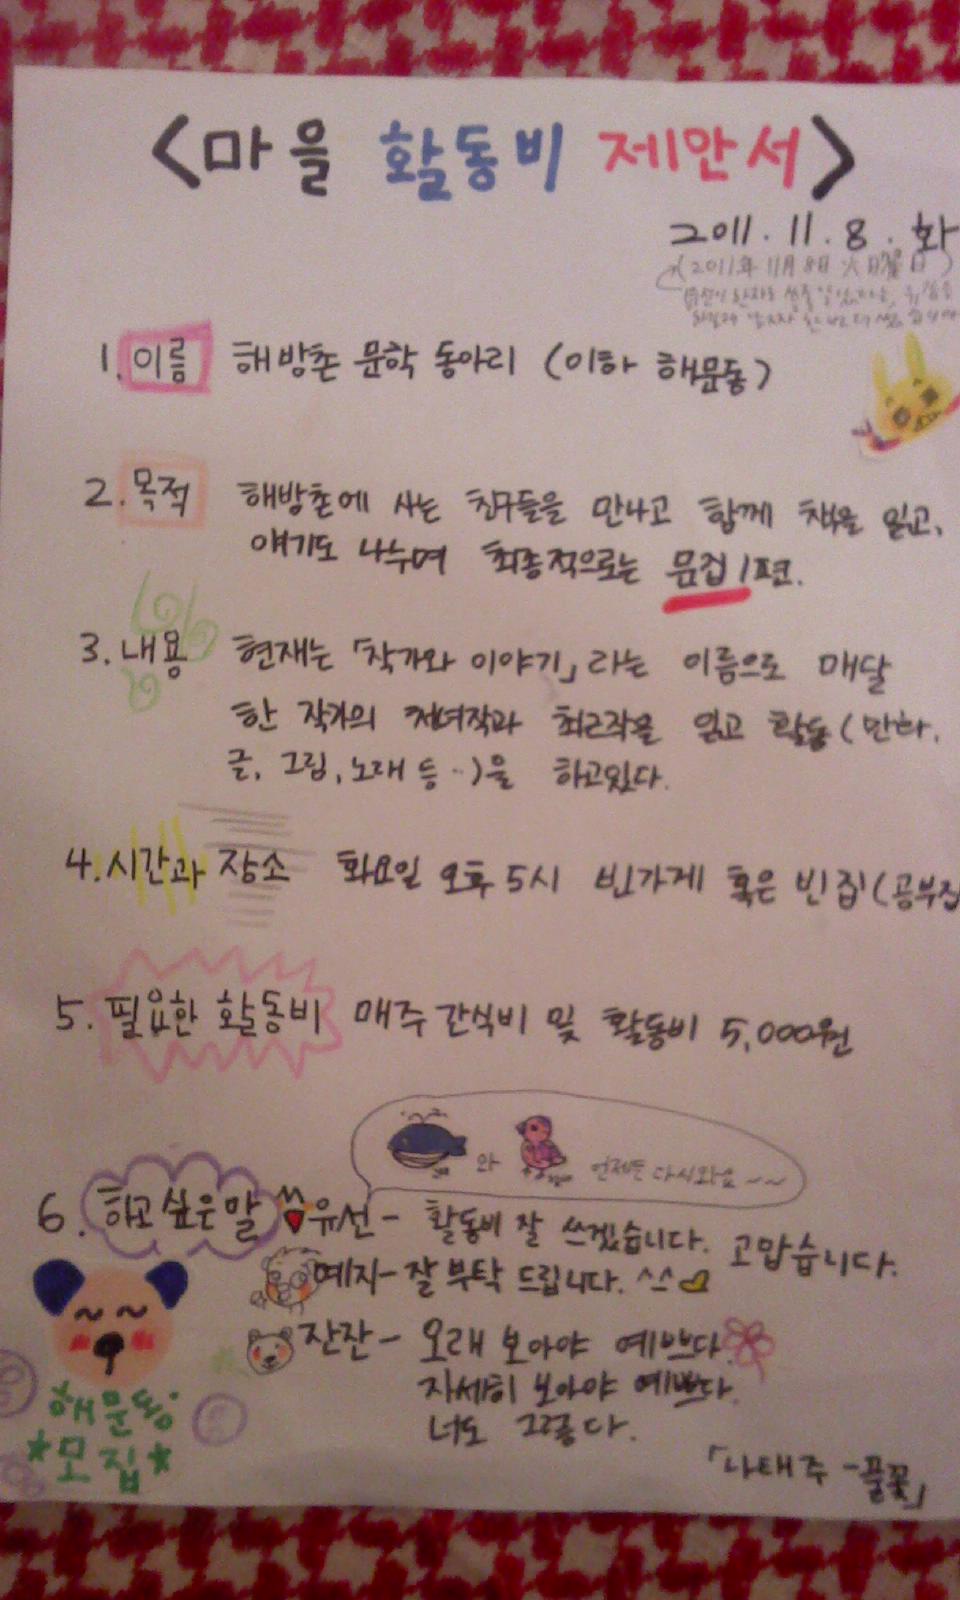 <마을 활동비 제안서>
2011. 11. 8. 화
(2011年 11月 8日 火曜日)
1. 이름 해방촌 문학 동아리 (이하 해문동)
2. 목적 해방촌에 사는 친구들을 만나고 함께 책을 읽고,
얘기도 나누며 최종적으로는 묶집 1편.
3. 내용 현재는 「작가와 이야기」라는 이름으로 매달
한 작가의 처녀작과 최근작을 읽고 활동(만화,
글, 그림, 노래 등..)을 하고있다.
4. 시간과 장소 화요일 오후 5시 빈가게 혹은 빈집(공부집
5. 필요한 활동비 매주 간식비 및 활동비 5,000원
와 언제든 다시와요~~
6. 하고 싶은 말 유선 - 활동비 잘 쓰겠습니다. 고맙습니다.
예지 - 잘 부탁 드립니다. ^^
잔잔 - 오래 보아야 예쁘다.
자세히 보아야 예쁘다.
너도 그렇다.
「나태주 - 풀꽃」
해문동
*모집*